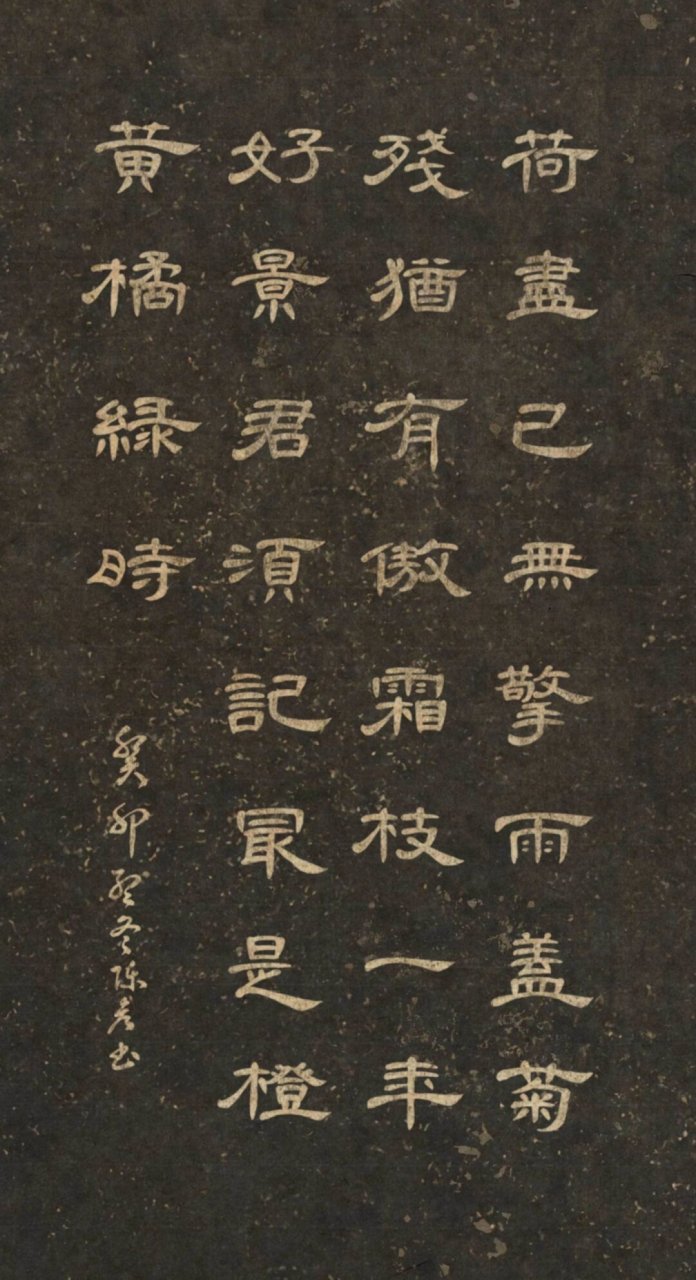 荷盡已無擎雨蓋菊
殘猶有傲霜枝一年
好景君須記冣是橙
黄橘緑時
癸卯冬陳書